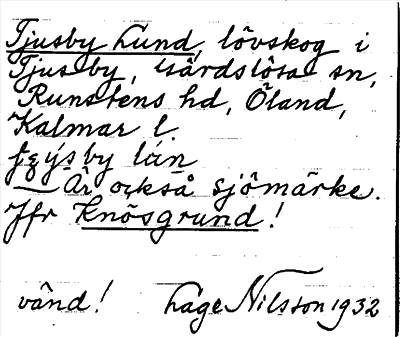 Tjusby Lund, lövskog i
Tjusby, Gärdslösa sn,
Runstens hd, Öland,
Kalmar l.
by lún
— Är också sjömärke.
Jfr Knösgrund!
vänd! Lage Nilsson 1932